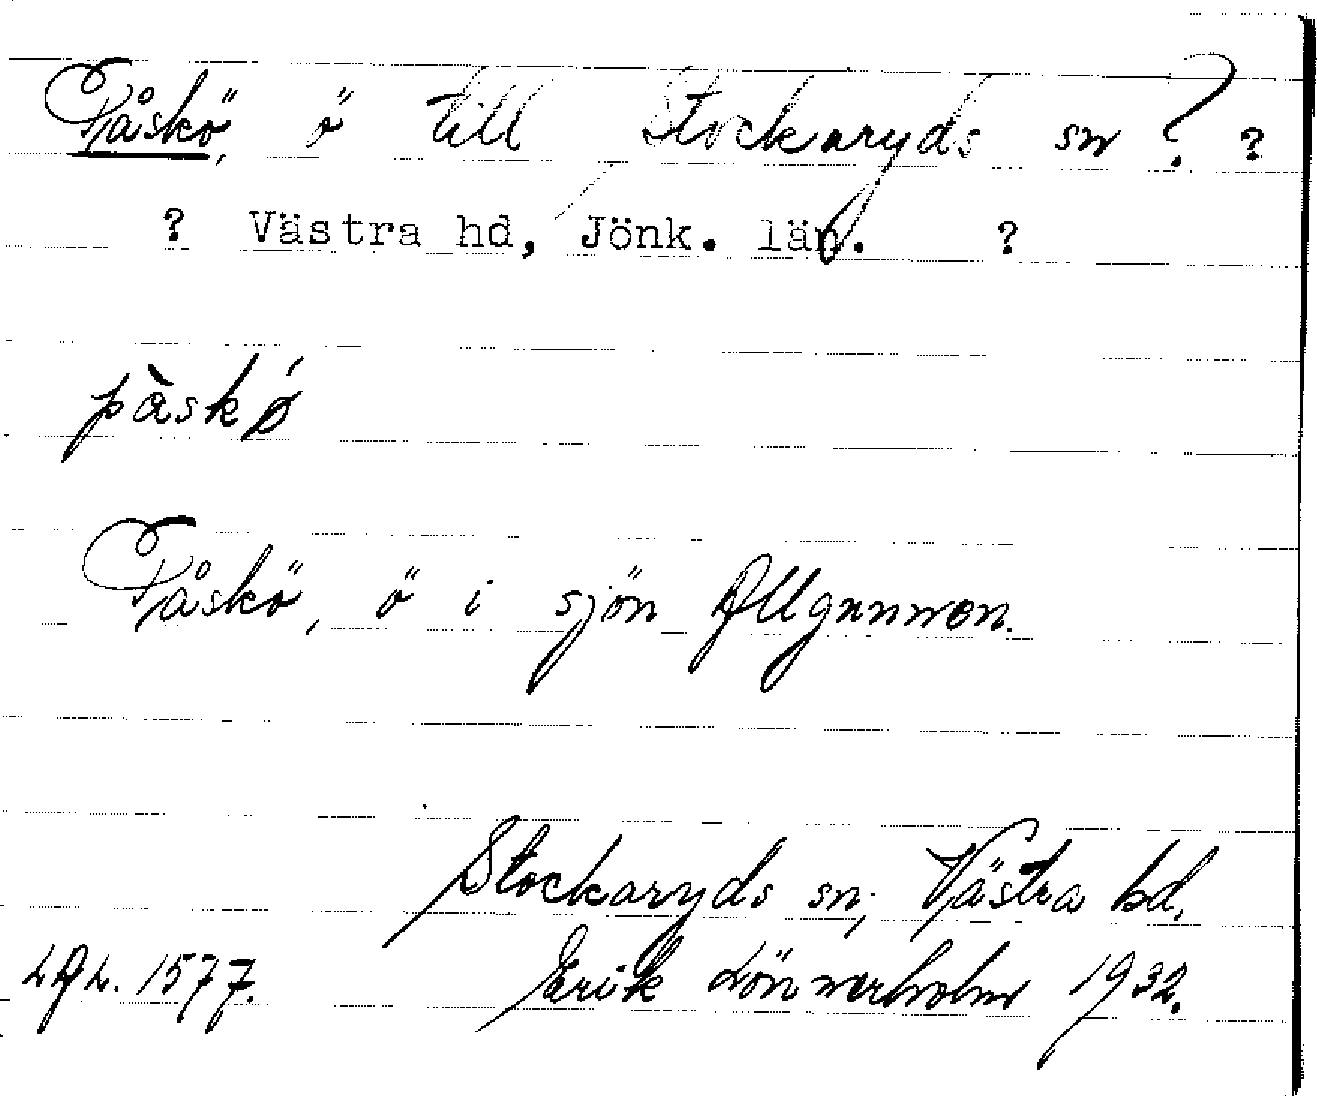 Påskö, ö till Stockaryds sn ? ?
? Västra hd, Jönk. län. ?
pàskǿ
Påskö, ö i sjön Allgunnen.
Stockaryds sn; Västra hd.
LAL. 1577. Erik Lönnerholm 1932.